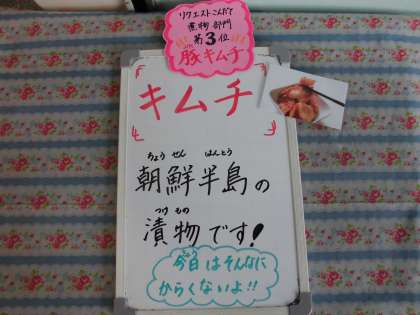 リクエストこんだて
煮物部門
第3位
豚キムチ
キムチ
ちょうせん はんとう
朝鮮半島の
つけもの
漬物です!
きょう
今日はそんなに
からくないよ!!